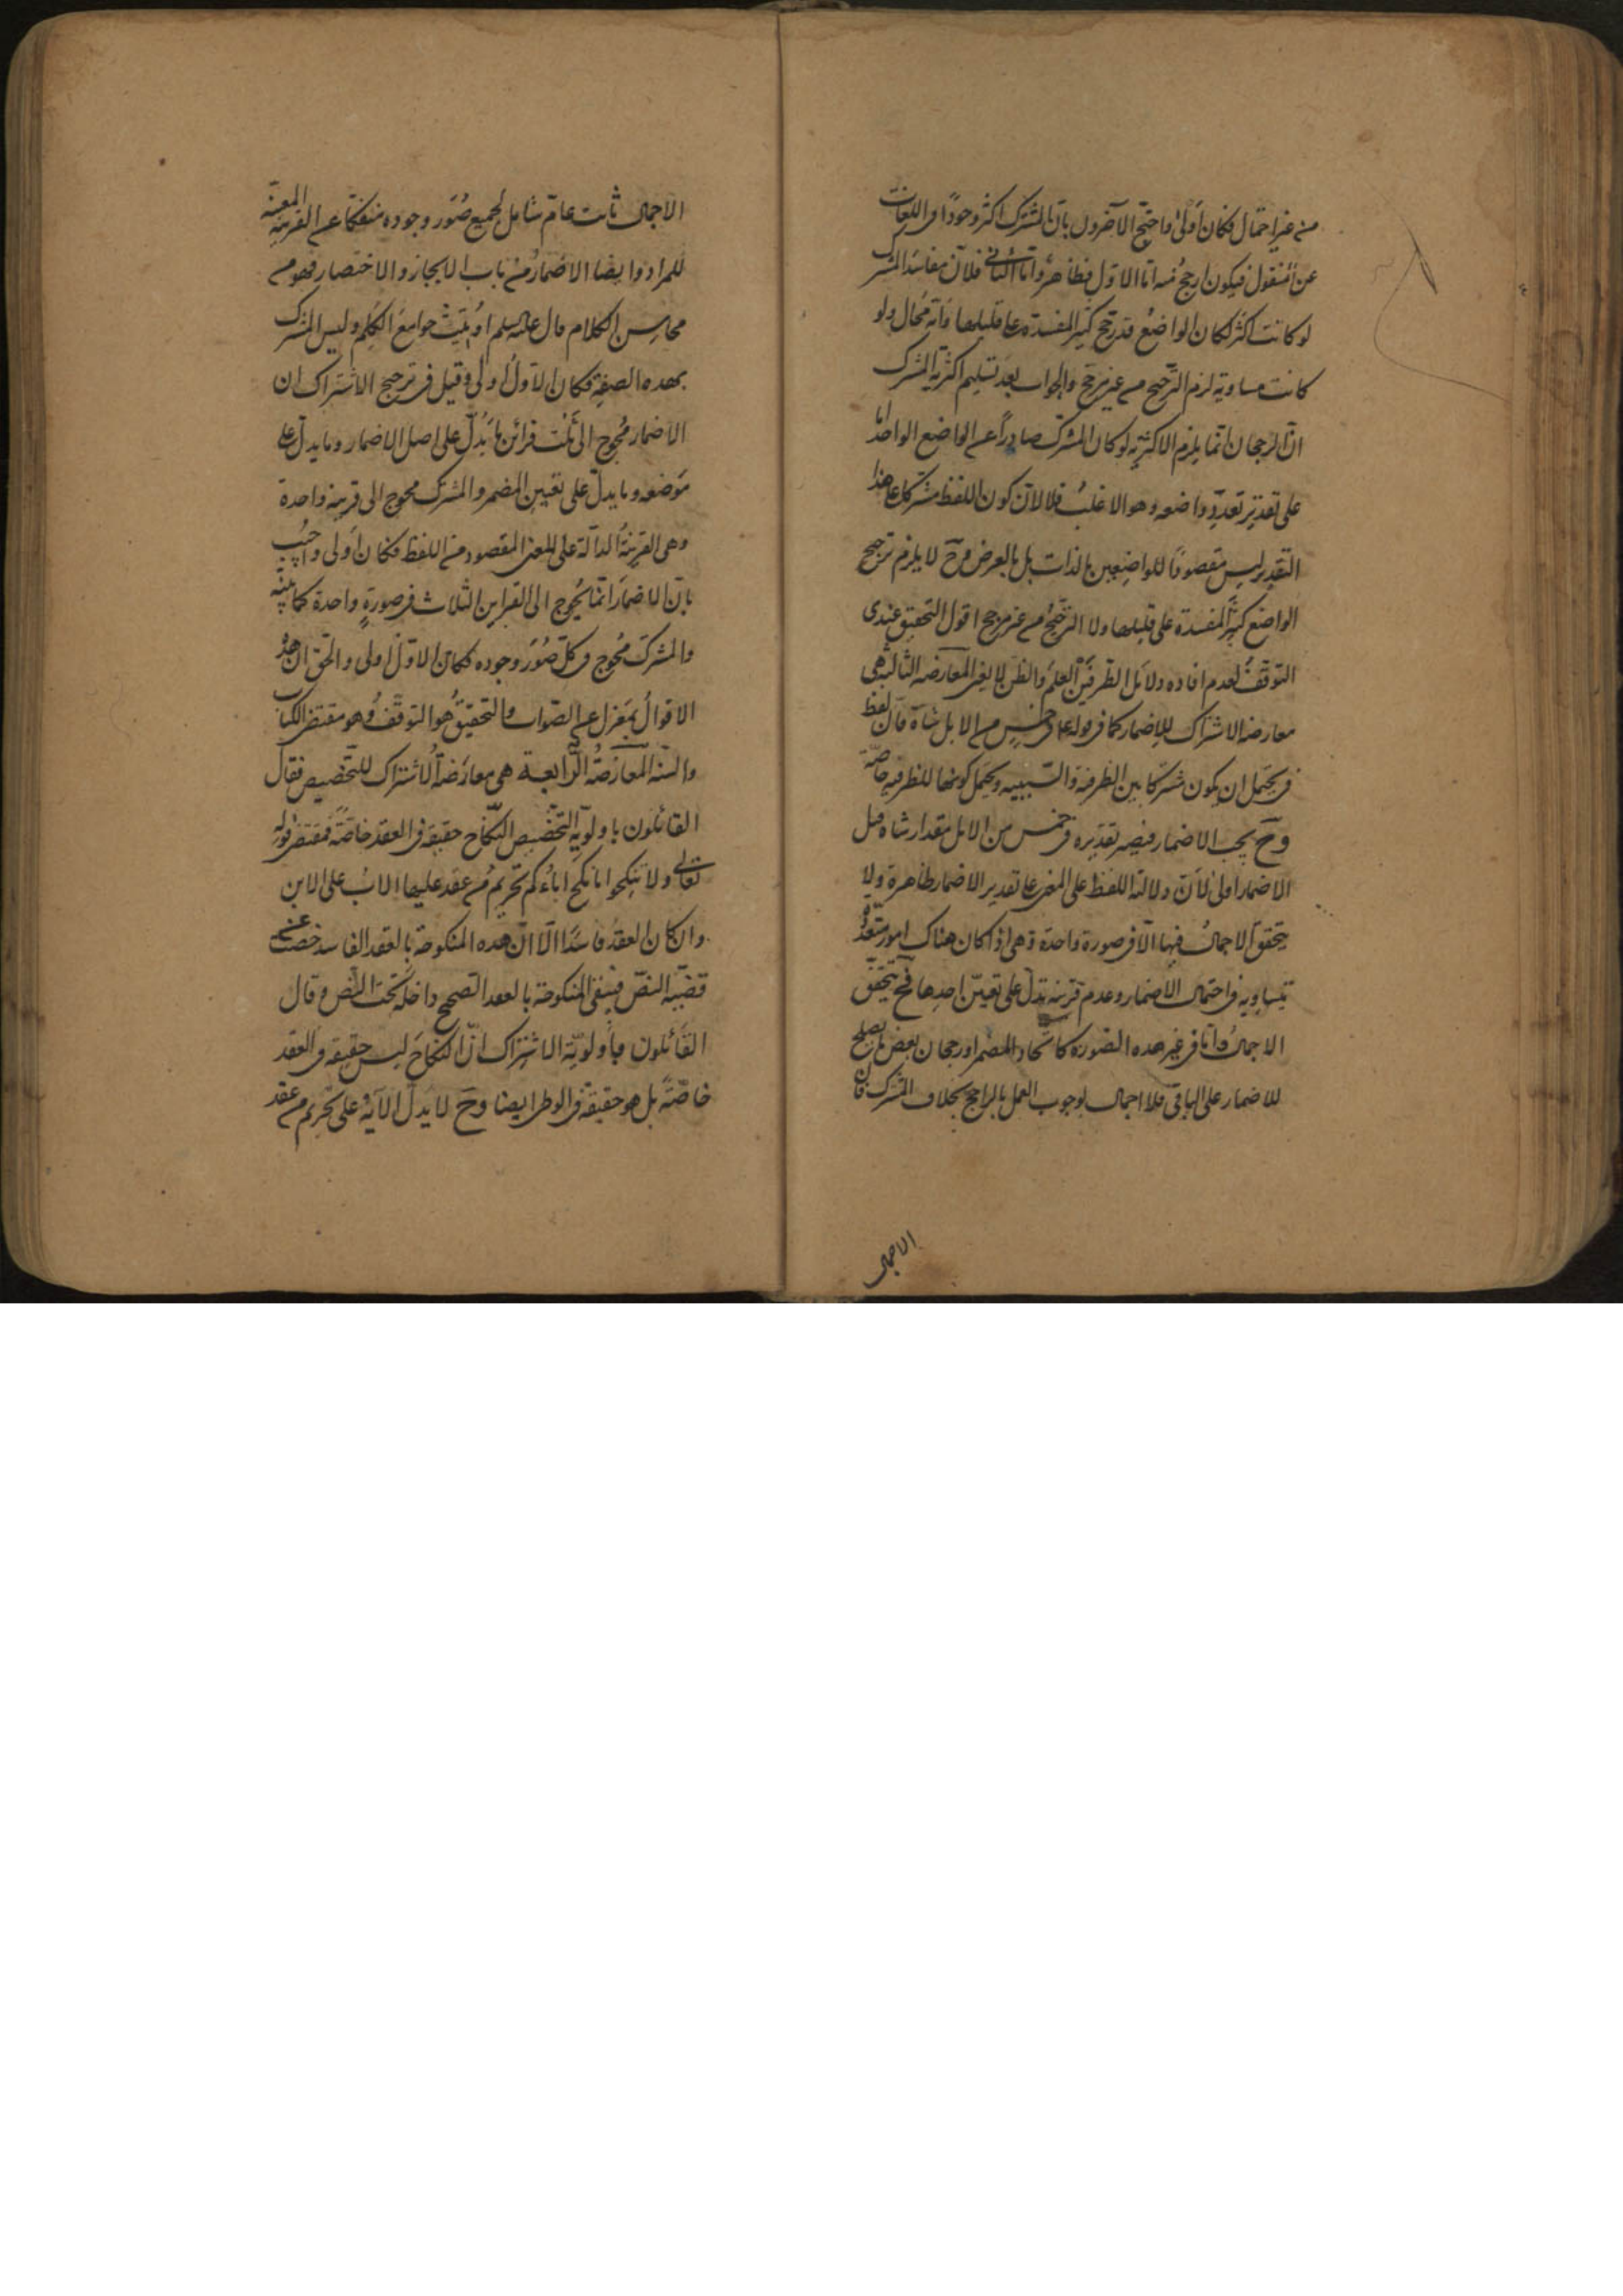 من غير احتمال فكان أولى واحتج الآخرون بان المشترك اكثر وجودًا فى اللغات
عن المنقول فيكون ارجح منه اما الاول فظاهر واما الثانى فلان مفاسد المشترك
لو كانت اكثر لكان الواضع قد رجح كثير المفسدة على قليلها وانه محال ولو
كانت مساوية لزم الترجيح من غير مرجح والجواب بعد تسليم اكثرية المشترك
ان الرجحان انما يلزم الاكثرية لو كان المشترك صادراً عن الواضع الواحد اما
على تقدير تعدد واضعه وهو الاغلب فلا لان كون اللفظ مشتركا على هذا
التقدير ليس مقصودًا للواضعين بالذات بل بالعرض وح لا يلزم ترجيح
الواضع كثير المفسدة على قليلها ولا الترجيح من غير مرجح اقول التحقيق عندى
التوقف لعدم افاده دلائل الطرفين العلم والظن لا يغنى المعارضه الثالثة هى
معارضه الاشتراك للاضمار كما فى قوله ع فى خمس من الابل شاة فان لفظ
فى يحتمل ان يكون مشتركا بين الظرفية والسببيه ويحتمل كونها للظرفيه خاصّة
وح يجب الاضمار فيصير تقديره فى خمس من الابل مقدار شاه قيل
الاضمار اولى لان دلالة اللفظ على المعنى على تقدير الاضمار ظاهرة ولا
يتحقق الاجمال فيها الّا فى صورة واحدة وهى اذا كان هناك امور متعدّدة
متساويه فى احتمال الاضمار وعدم قرينه تدل على تعيّن احدها فح يتحقق
الاجمال واما فى غير هده الصّوره كاتحاد المضمر او رجحان بعض ما يصلح
للاضمار على الباقى فلا اجمال لوجوب العمل بالراجح بخلاف المشترك فان
الاجمال
الاجمال ثابت عامّ شامل لجميع صُوَر وجوده منفكا عن القرينه المعينة
للمراد وايضا الاضمار من باب الايجاز والاختصار فهو من
محاسن الكلام قال عليه السلم اوتيت جوامعَ الكلم وليس المشترك
بهده الصفة فكان الاول أولى وقيل فى ترجيح الاشتراك ان
الاضمار محوج الى ثلث قرائن ما يدلّ على اصل الاضمار وما يدلّ على
موضعه وما يدلّ على تعيين المضمر والمشترك محوج الى قرينه واحدة
وهى القرينةُ الدالّة على المعنى المقصود من اللفظ فكان أولى واجيب
بان الاضمار انما يُحوج الى القراين الثلاث فى صورةٍ واحدة كما بيّنه
والمشترك محوج فى كل صُوَر وجوده فكان الاول اولى والحق ان هذه
الاقوال بمعزل عن الصّواب والتحقيق هو التوقف وهو مقتضى الكتاب
والسنه المعارضة الرّابعة هى معارضة الاشتراك للتخصيص فقال
القائلون باولويّة التخصيص النكاح حقيقه فى العقد خاصّةً فمقتضى قوله
تعالى ولا تنكحوا ما نكح اباؤكم تحريم من عقد عليها الاب على الابن
وان كان العقد فاسدًا الّا انّ هده المنكوحة بالعقد الفاسد خصّت عن
قضيّة النصّ فبقى المنكوحة بالعقد الصحيح داخلة تحت النّص وقال
القائلون باولويّة الاشتراك انّ النكاح ليس حقيقه فى العقد
خاصّةً بل هو حقيقة فى الوطى ايضا وح لا يدلّ الآية على تحريم من عقد